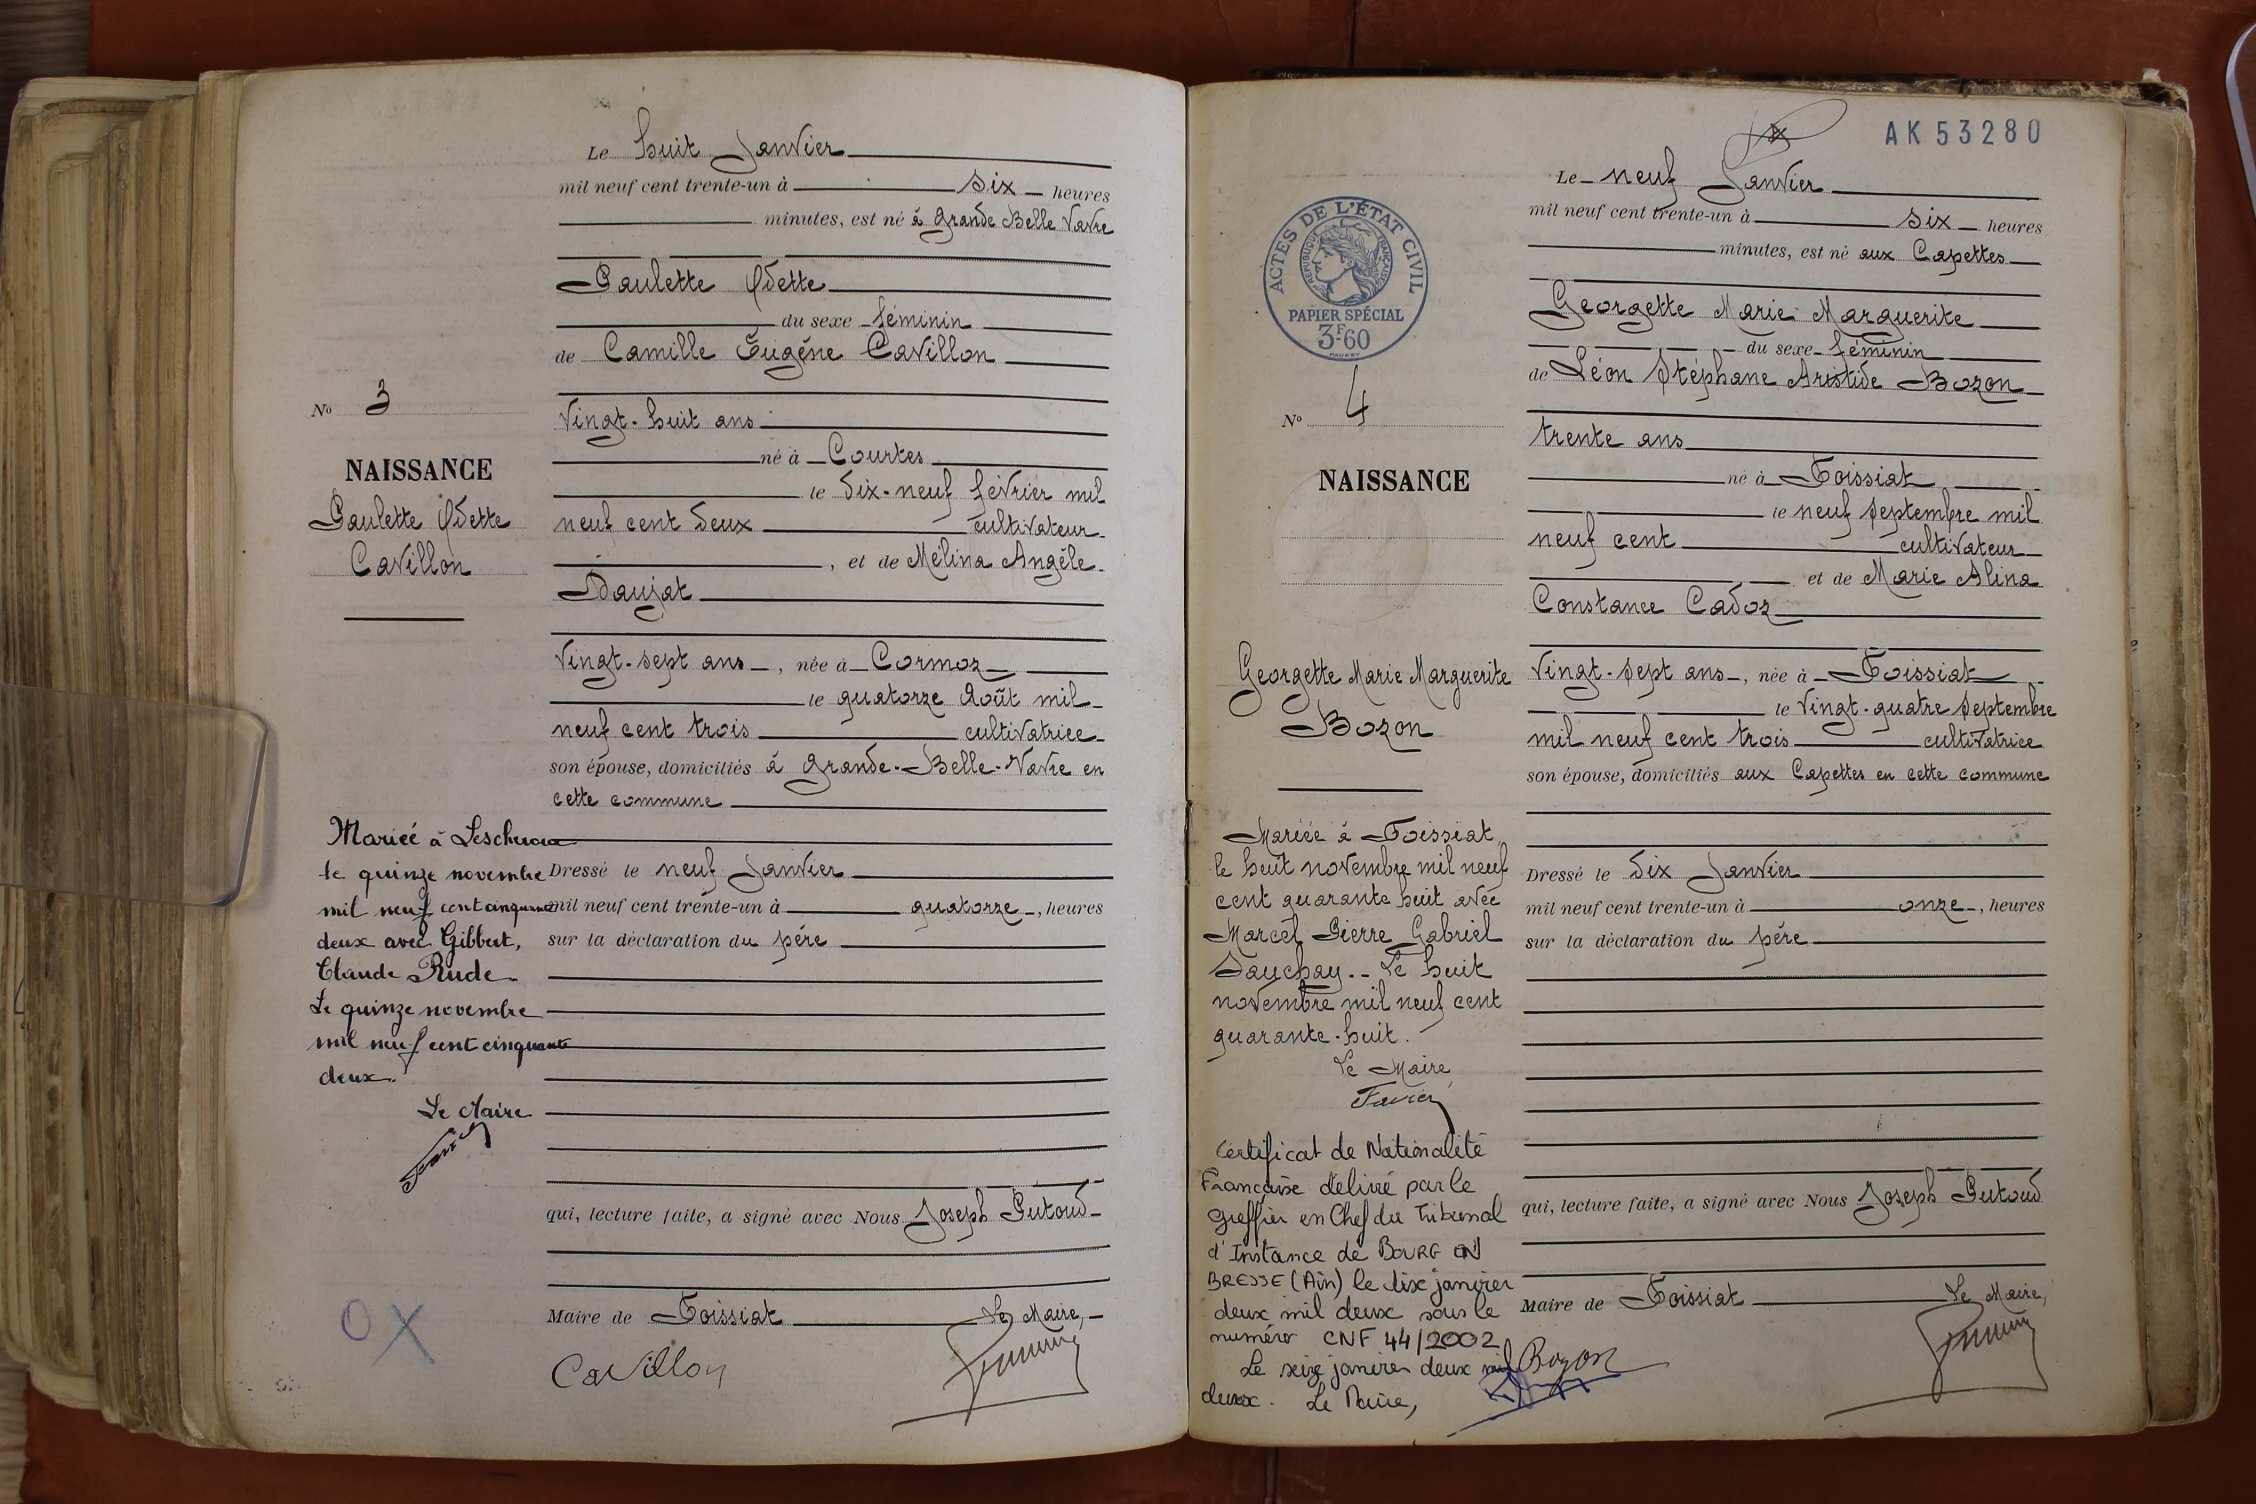 Le huit Janvier
mil neuf cent trente-un à six heures
minutes, est né à Grande Belle Vavre
Paulette Odette
du sexe féminin
de Camille Eugène Cavillon
No 3
Vingt-huit ans
né à Courtes
NAISSANCE
le dix-neuf février mil
Paulette Odette
neuf cent deux cultivateur
Cavillon
, et de Mélina Angèle
Daujat
Vingt-sept ans, née à Cormoz
le quatorze Août mil
neuf cent trois cultivatrice
son épouse, domiciliés à Grande-Belle-Vavre en
cette commune
Mariée à
le quinze novembre
mil neuf cent cinquante
deux avec Gilbert,
Claude Rude
Le quinze novembre
mil neuf cent cinquante
deux.
Le Maire
Dressé le neuf Janvier
mil neuf cent trente-un à quatorze, heures
sur la déclaration du père
qui, lecture faite, a signé avec Nous Joseph Putoud
Maire de Foissiat Le Maire,
Cavillon
OX
AK 53280
Le neuf Janvier
mil neuf cent trente-un à six heures
minutes, est né aux Capettes
ACTES DE L'ÉTAT CIVIL
RÉPUBLIQUE FRANÇAISE
PAPIER SPÉCIAL
3F60
Georgette Marie Marguerite
du sexe féminin
de Léon Stéphane Aristide Bozon
No 4
trente ans
NAISSANCE
né à Foissiat
le neuf Septembre mil
neuf cent cultivateur
et de Marie Alina
Constance Cadoz
Georgette Marie Marguerite
Bozon
Vingt-sept ans, née à Foissiat
le Vingt-quatre Septembre
mil neuf cent trois cultivatrice
son épouse, domiciliés aux Capettes en cette commune
Mariée à Foissiat
le huit novembre mil neuf
cent quarante huit avec
Marcel Pierre Gabriel
Dauchay.- Le huit
novembre mil neuf cent
quarante-huit.
Le Maire
Favier
Certificat de Nationalité
Française délivré par le
Greffier en Chef du Tribunal
d'Instance de BOURG EN
BRESSE (Ain) le dix janvier
deux mil deux sous le
numéro CNF 44/2002
Le seize janvier deux mil
deux. Le Maire,
Dressé le dix Janvier
mil neuf cent trente-un à onze, heures
sur la déclaration du père
qui, lecture faite, a signé avec Nous Joseph Putoud
Maire de Foissiat Le Maire,
Bozon